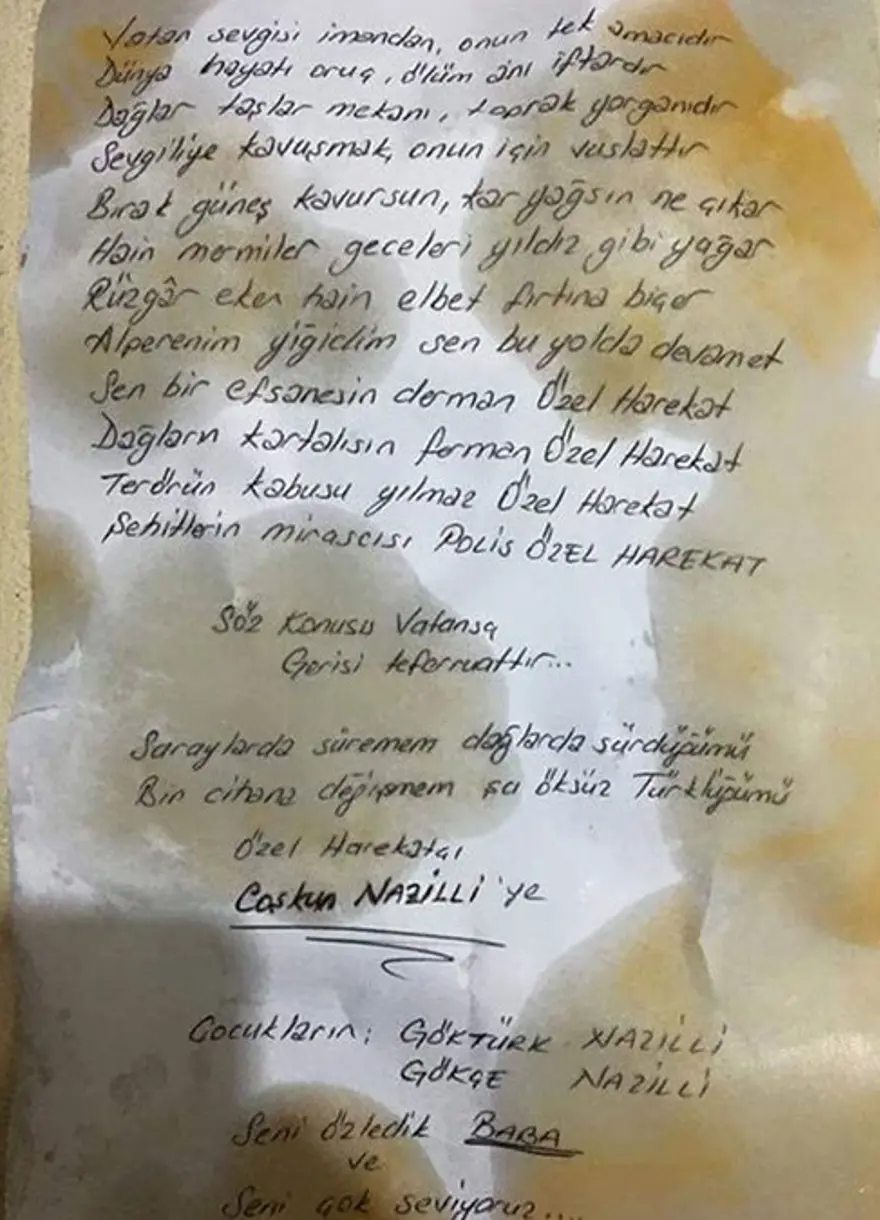 Vatan sevgisi imandan, onun tek amacıdır
Dünya hayatı oruç, ölüm ânı iftardır
Dağlar taşlar mekanı, toprak yorganıdır
Sevgiliye kavuşmak, onun için vuslattır
Bırak güneş kavursun, kar yağsın ne çıkar
Hain mermiler geceleri yıldız gibi yağar
Rüzgâr eken hain elbet fırtına biçer
Alperenim yiğidim sen bu yolda devamet
Sen bir efsanesin derman Özel Harekat
Dağların kartalısın ferman Özel Harekat
Terörün kabusu yılmaz Özel Harekat
Şehitlerin mirasçısı POLİS ÖZEL HAREKAT
Söz Konusu Vatansa
Gerisi teferruattır...
Saraylarda süremem dağlarda sürdüğümü
Bin cihana değişmem şu öksüz Türklüğümü
Özel Harekatçı
Coşkun NAZİLLİ'ye
Çocukların; GÖKTÜRK NAZİLLİ
GÖKÇE NAZİLLİ
Seni özledik BABA
ve
Seni çok seviyoruz....